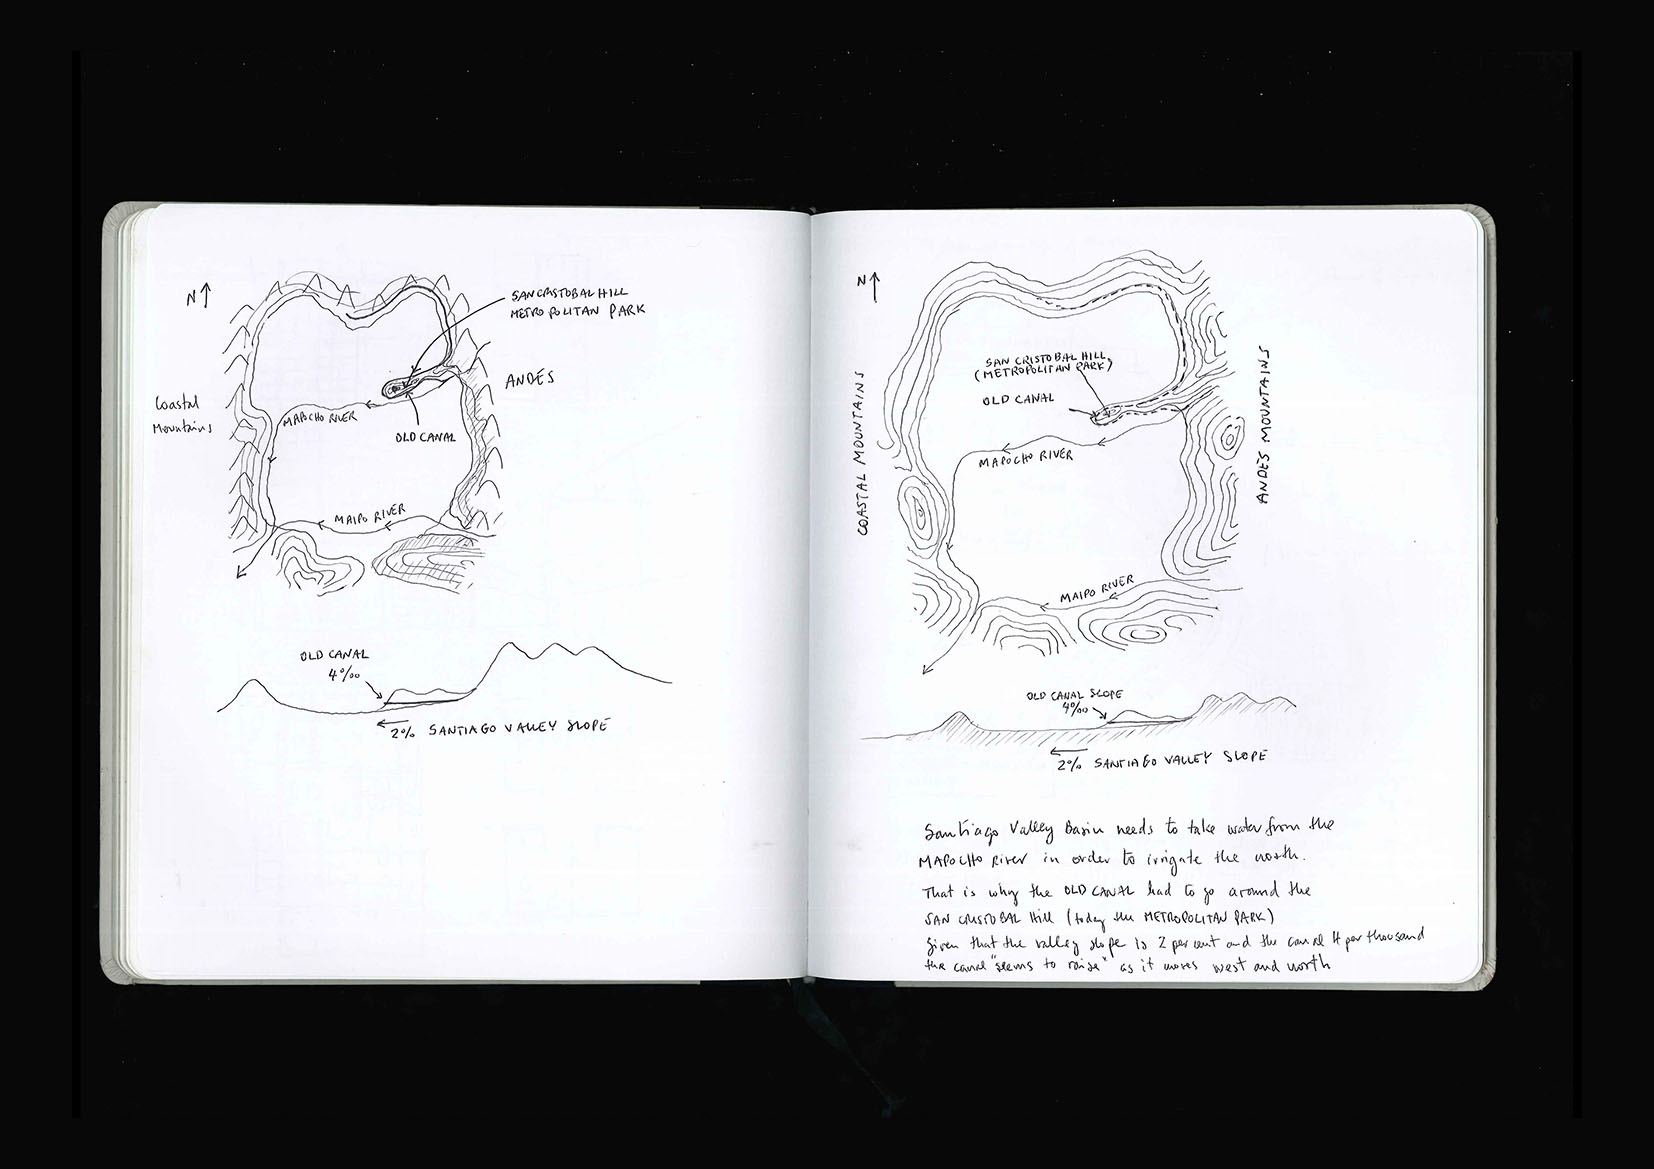 N
SAN CRISTOBAL HILL
METROPOLITAN PARK
ANDES
Coastal
Mountains
MAPOCHO RIVER
OLD CANAL
MAIPO RIVER
OLD CANAL
4‰
2% SANTIAGO VALLEY SLOPE
N
SAN CRISTOBAL HILL
(METROPOLITAN PARK)
OLD CANAL
COASTAL MOUNTAINS
ANDES MOUNTAINS
MAPOCHO RIVER
MAIPO RIVER
OLD CANAL SLOPE
4‰
2% SANTIAGO VALLEY SLOPE
Santiago Valley Basin needs to take water from the
MAPOCHO River in order to irrigate the north.
That is why the OLD CANAL had to go around the
SAN CRISTOBAL Hill (today the METROPOLITAN PARK)
Given that the valley slope is 2 per cent and the canal 4 per thousand
the canal "seems to raise" as it moves west and north